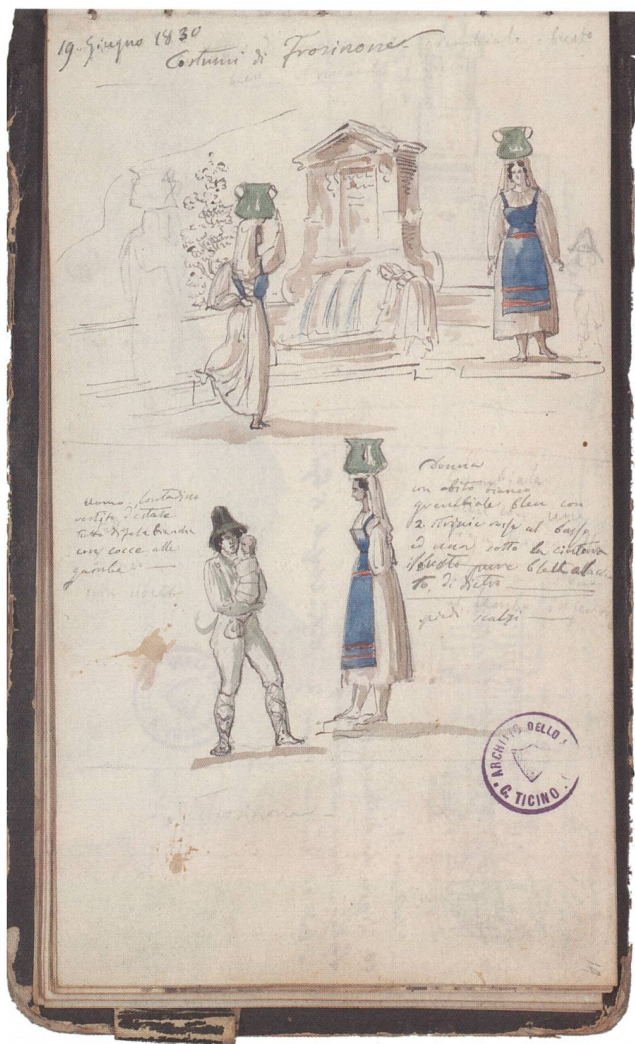 19. Giugno 1830
Costumi di Frosinone
uomo, contadino
vestito d'estate
tutto di tela bianca
con cocce alle
gambe
Donna
con abito bianco
grembiale bleu con
2 striscie rosse al basso
ed una sotto la cintura
busto pure bleu
to, di dietro
piedi scalzi
ARCHIVIO DELLO
C. TICINO